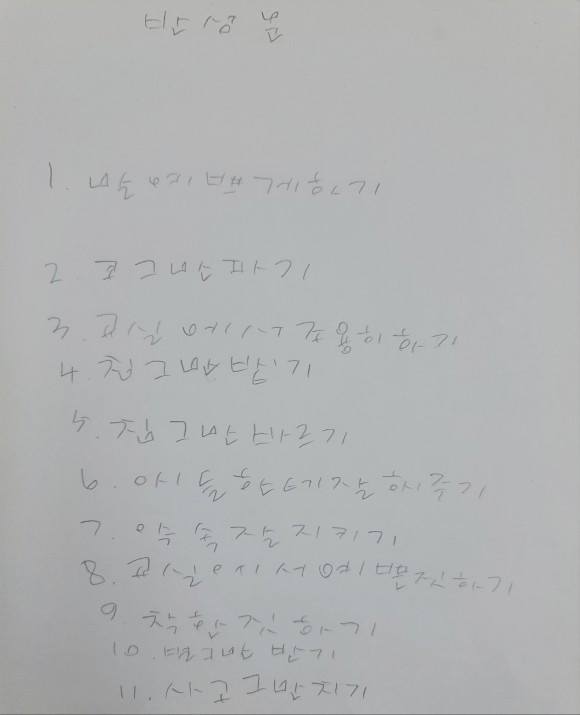 반성문
1. 말 예쁘게하기
2. 코 그만 파기
3. 교실에서 조용히 하기
4. 침 그만 뱉기
5. 침 그만 바르기
6. 아이들한테 잘 해주기
7. 약속 잘 지키기
8. 교실에서 예쁜짓하기
9. 착한 짓 하기
10. 벌 그만 받기
11. 사고 그만 치기